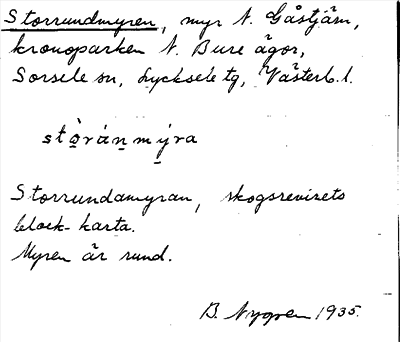 Storrundmyren, myr N. Gåstjärn,
kronoparken N. Bure ägor,
Sorsele sn, Lycksele tg, Västerb. l.
stò̱rán̠mý̠ra
Storrundamyran, skogsrevirets
block-karta.
Myren är rund.
B. Nygren 1935.